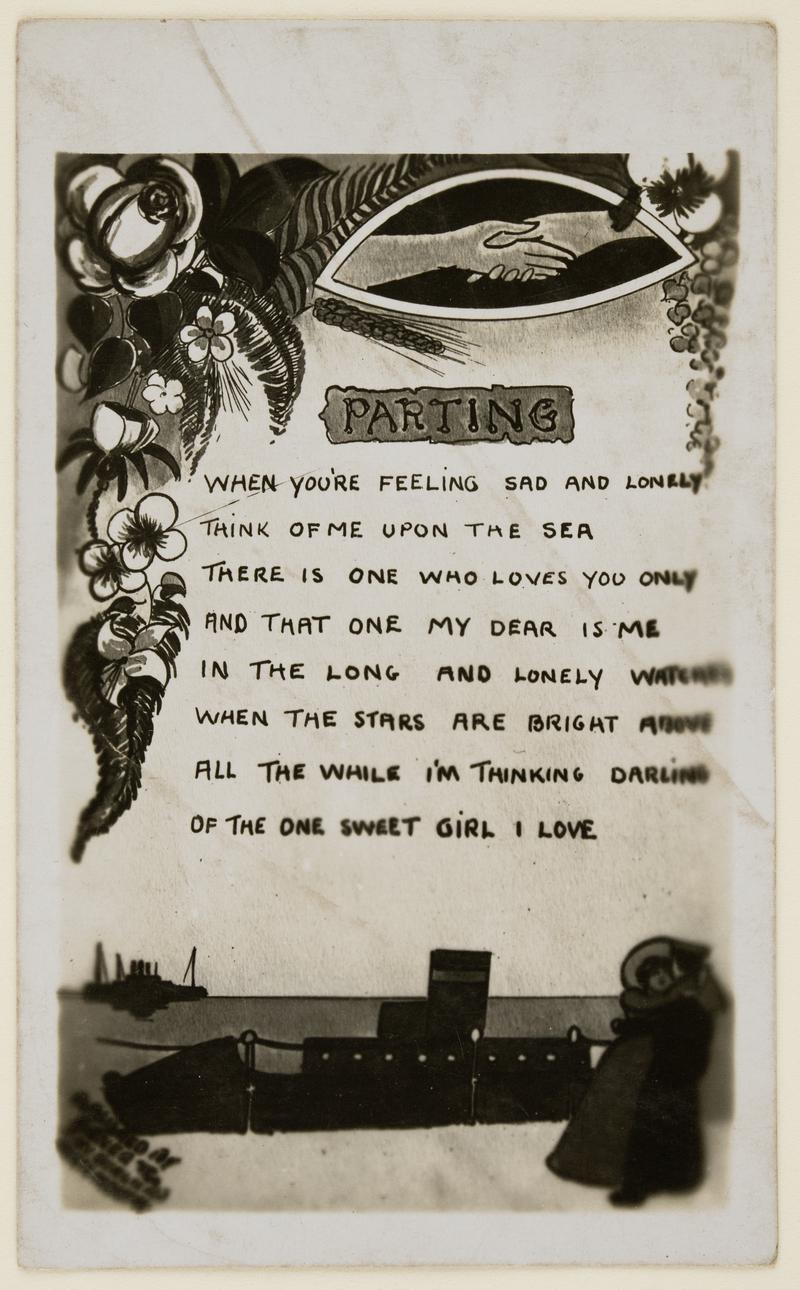 PARTING
WHEN YOU'RE FEELING SAD AND LONELY
THINK OF ME UPON THE SEA
THERE IS ONE WHO LOVES YOU ONLY
AND THAT ONE MY DEAR IS ME
IN THE LONG AND LONELY WATCHES
WHEN THE STARS ARE BRIGHT ABOVE
ALL THE WHILE I'M THINKING DARLING
OF THE ONE SWEET GIRL I LOVE